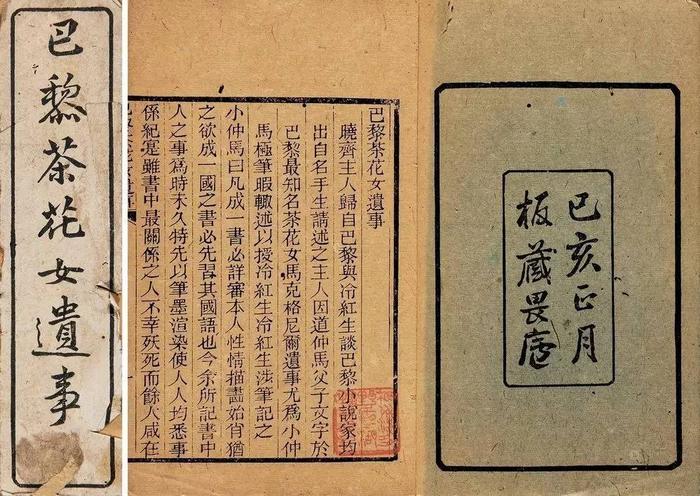 巴黎茶花女遺事
己亥正月
板藏畏廬
巴黎茶花女遺事
曉齊主人歸自巴黎與冷紅生談巴黎小說家均
出自名手生請述之主人因道仲馬父子文字於
巴黎最知名茶花女馬克格尼爾遺事尤爲小仲
馬極筆暇輒述以授冷紅生冷紅生涉筆記之
小仲馬曰凡成一書必詳審本人性情描畫始肖猶
之欲成一國之書必先習其國語也今余所記書中
人之事爲時未久特先以筆墨渲染使人人均悉事
係紀寔雖書中最關係之人不幸殀死而餘人咸在